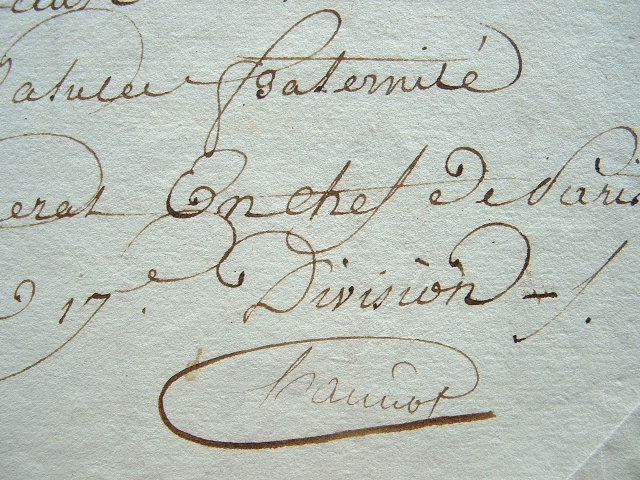 Salut et fraternité
eral En chef de Paris
17.e Division